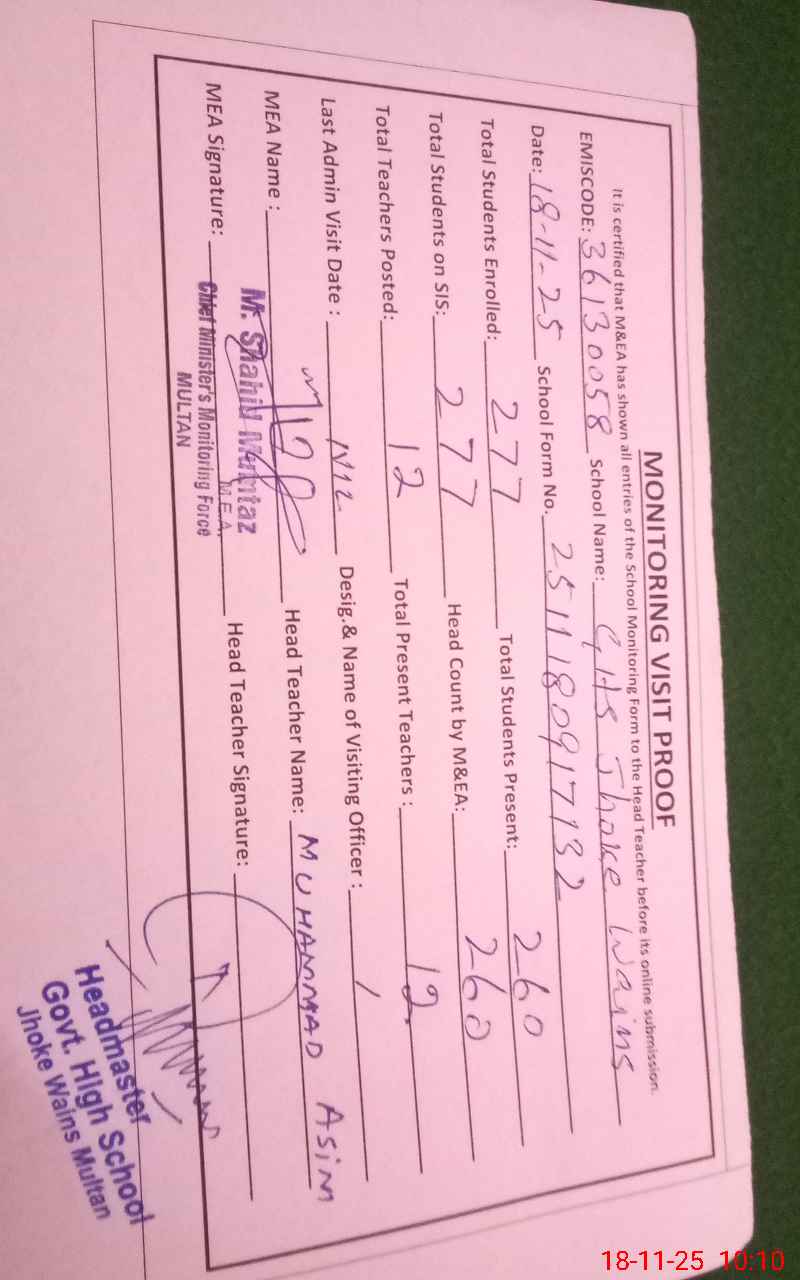 MONITORING VISIT PROOF
It is certified that M&EA has shown all entries of the School Monitoring Form to the Head Teacher before its online submission.
EMISCODE: 36130058 School Name: GHS Jhoke Wains
Date: 18-11-25 School Form No. 2511180917132
Total Students Enrolled: 277 Total Students Present: 260
Total Students on SIS: 277 Head Count by M&EA: 260
Total Teachers Posted: 12 Total Present Teachers : 12
Last Admin Visit Date : Nil Desig.& Name of Visiting Officer : /
MEA Name : Head Teacher Name: MUHAMMAD ASiM
M. Shahid Mumtaz
M.E.A.
MEA Signature: Head Teacher Signature:
Chief Minister's Monitoring Force
MULTAN
Headmaster
Govt. High School
Jhoke Wains Multan
18-11-25 10:10